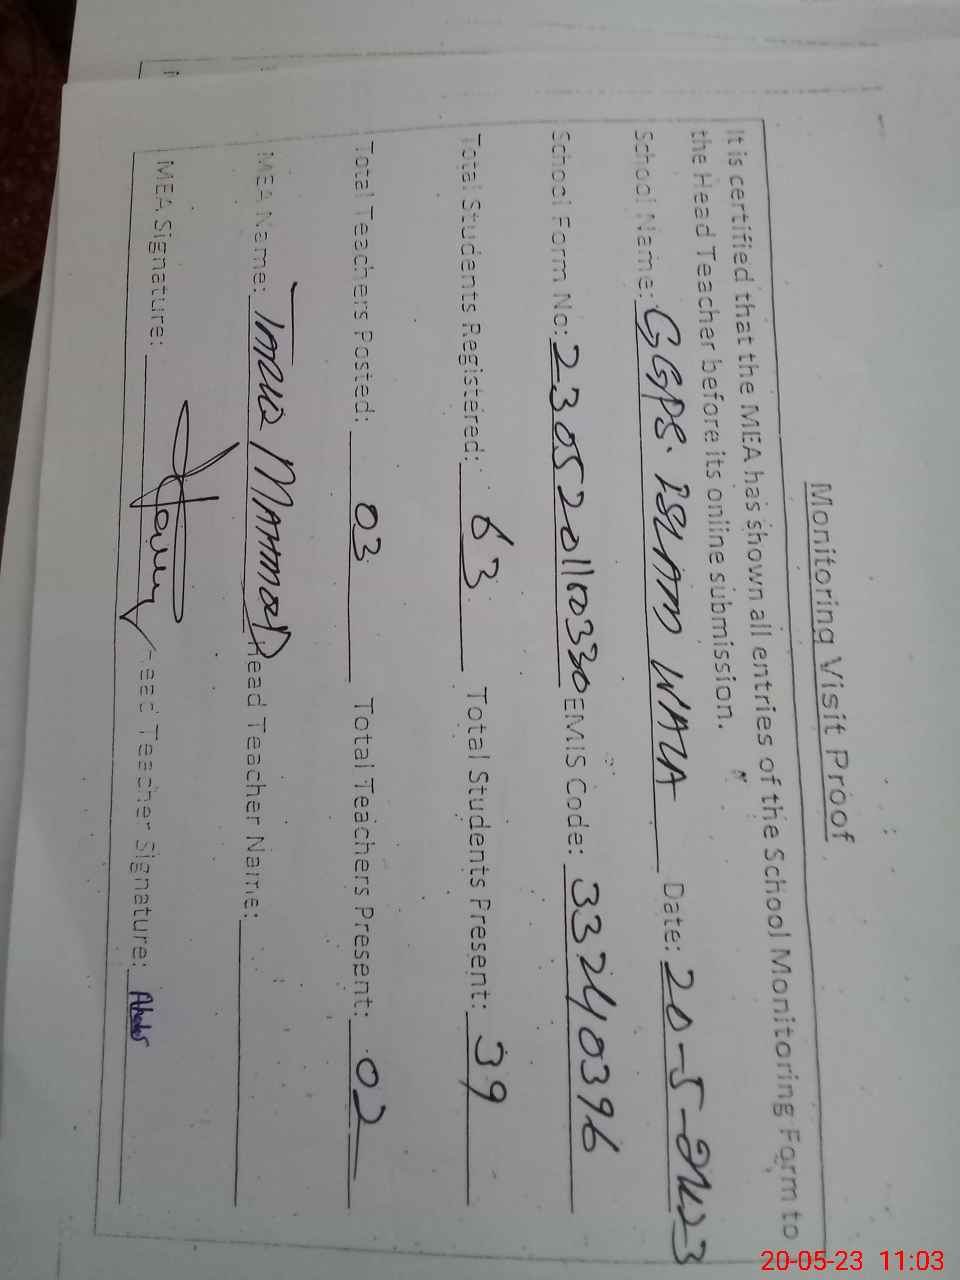 Monitoring Visit Proof
It is certified that the MEA has shown all entries of the School Monitoring Form to
the Head Teacher before its online submission.
School Name: GGPS. ISLAM WALA Date: 20-5-2023
School Form No: 2305201100330 EMIS Code: 33240396
Total Students Registered: 63 Total Students Present: 39
Total Teachers Posted: 03 Total Teachers Present: 02
MEA Name: TARIQ MAHMOOD Head Teacher Name:
MEA Signature: Head Teacher Signature:
20-05-23 11:03